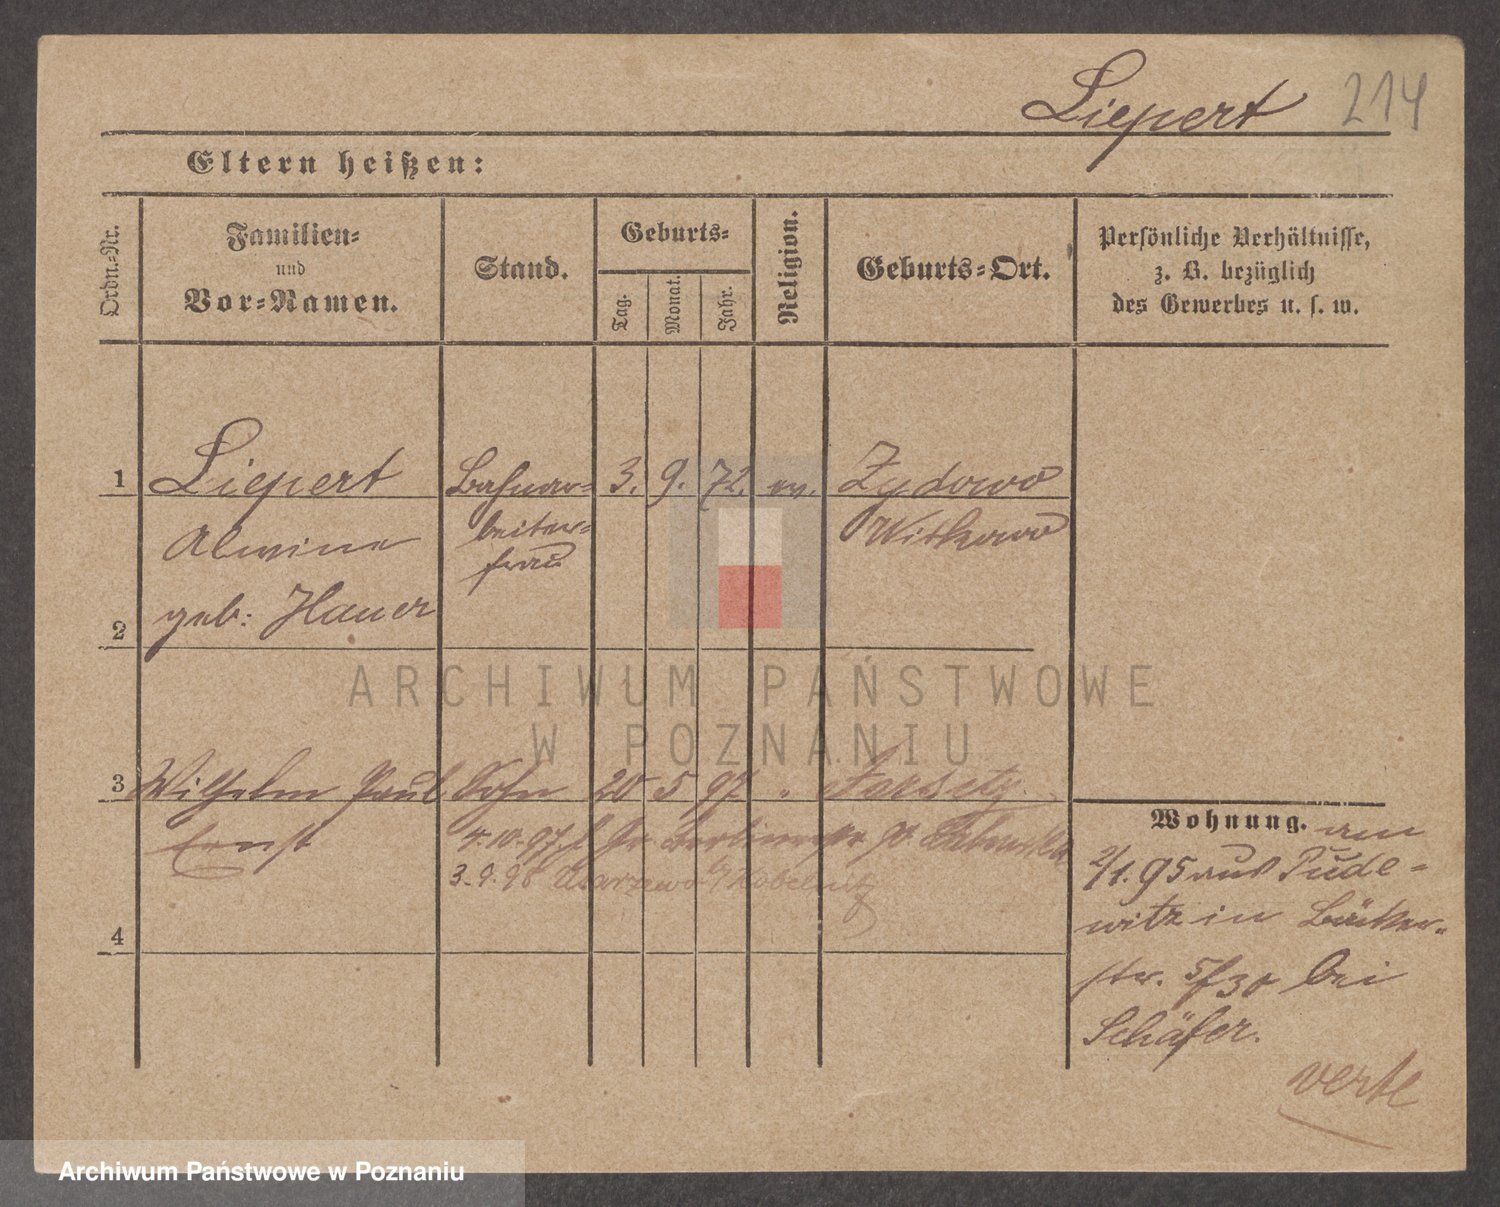 Liepert 214
Eltern heißen:
Ordn.-Nr.
Familien-
und
Vor-Namen.
Stand.
Geburts-
Tag.
Monat.
Jahr.
Religion.
Geburts-Ort.
Persönliche Verhältnisse,
z. B. bezüglich
des Gewerbes u. s. w.
1 Liepert Bahnar- 3. 9. 72. ev. Zydowo
Alwine beiter- Witkowo
frau
geb: Hauer
2
ARCHIWUM PAŃSTWOWE
W POZNANIU
3 Wilhelm Paul Sohn 20 5 97 "
Ernst 4.10.97 Gr. Berlinerstr
3.9.98
4
Wohnung. am
2/1.95 aus Pude-
witz in Bäcker-
str. 5/30 bei
Schäfer.
verte
Archiwum Państwowe w Poznaniu